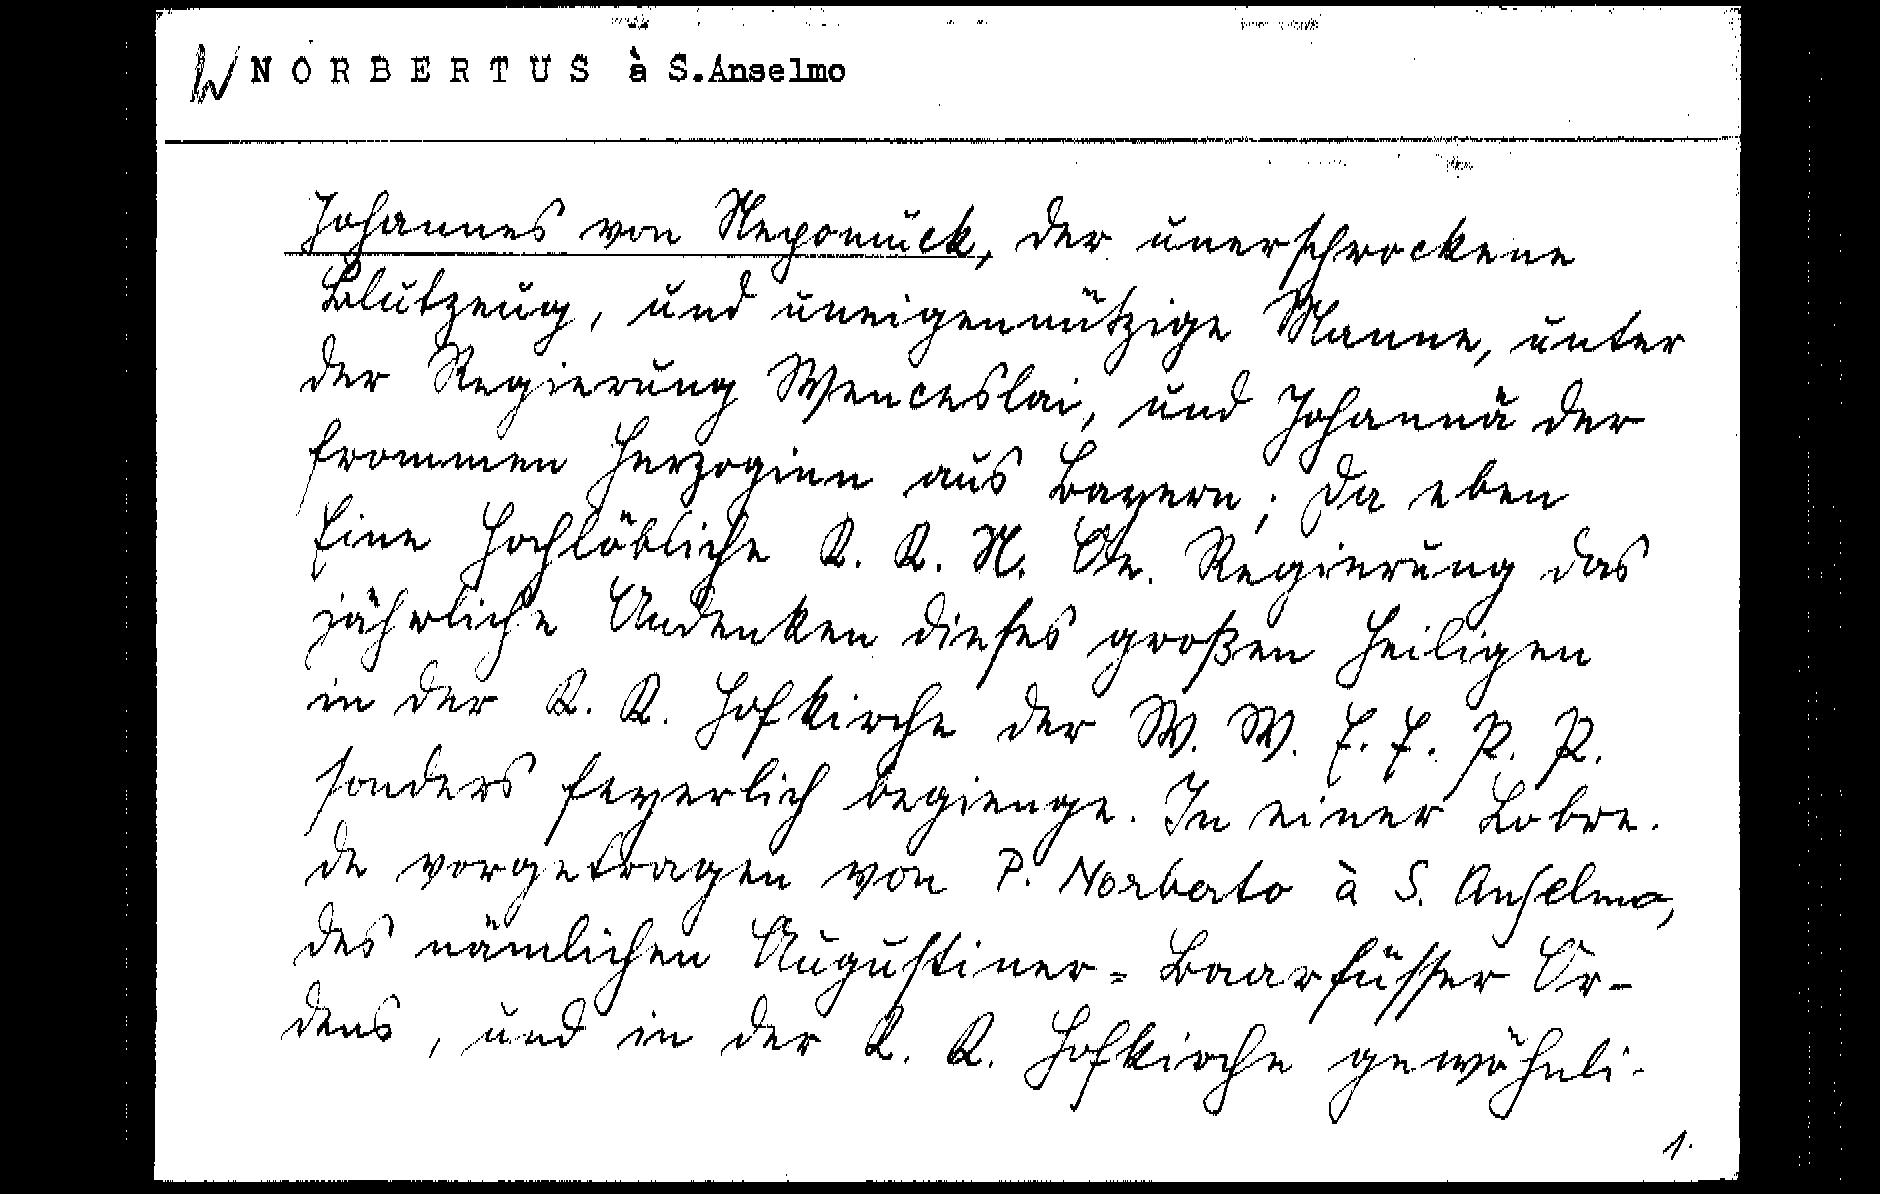 W NORBERTUS à S.Anselmo
Johannes von Nepomuck, der unerschrockene
Blutzeug, und uneigennützige Manne, unter
der Regierung Wenceslai, und Johannä der
frommen Herzoginn aus Bayern; da eben
Eine Hochlöbliche K. K. N. Oe. Regierung das
jährliche Andenken dieses großen Heiligen
in der K. K. Hofkirche der W. W. E. E. P. P.
sonders feyerlich begienge. In einer Lobre-
de vorgetragen von P. Norberto à S. Anselmo,
des nämlichen Augustiner = Baarfüsser Or-
dens, und in der K. K. Hofkirche gewöhnli-
1.